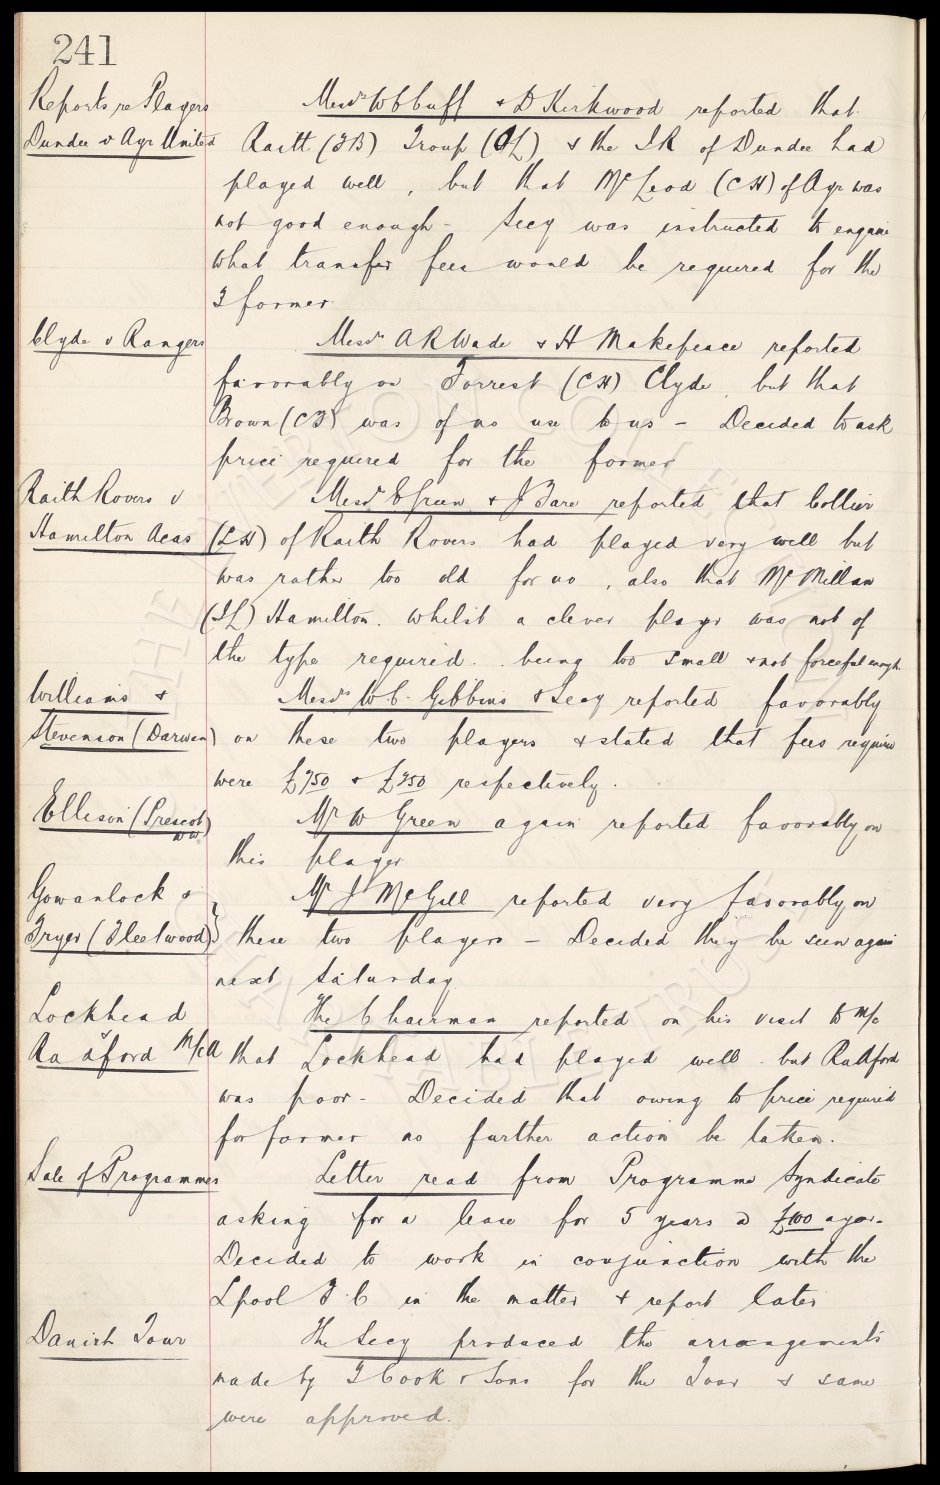 241
Reports re Players
Dundee v Ayr United
Messrs W C Cuff & D Kirkwood reported that
Raitt (FB) Troup (OL) & the IR of Dundee had
played well, but that McLeod (CH) of Ayr was
not good enough - Secy was instructed to enquire
what transfer fees would be required for the
3 former
Clyde v Rangers
Messrs A R Wade & H Makepeace reported
favorably on Forrest (CH) Clyde, but that
Brown (CF) was of no use to us - Decided to ask
price required for the former
Raith Rovers v
Hamilton Acas
Messrs E Green & J Fare reported that Collier
(LH) of Raith Rovers had played very well but
was rather too old for us, also that McMillan
(IL) Hamilton. whilst a clever player was not of
the type required.. being too small & not forceful enough
Williams &
Stevenson (Darwen)
Messrs W C. Gibbins & Secy reported favorably
on these two players & stated that fees required
were £750 & £250 respectively.
Ellison (Prescot)
Mr W Green again reported favorably on
this player
Gowanlock &
Fryer (Fleetwood)
Mr J McGill reported very favorably on
these two players - Decided they be seen again
next Saturday
Lockhead
Radford M/c U
The Chairman reported on his visit to M/c
that Lockhead had played well. but Radford
was poor - Decided that owing to price required
for former no further action be taken.
Sale of Programmes
Letter read from Programme Syndicate
asking for a lease for 5 years @ £100 a year.
Decided to work in conjunction with the
Lpool F.C in the matter & report later
Danish Tour
The Secy produced the arrangements
made by T Cook & Sons for the Tour & same
were approved.